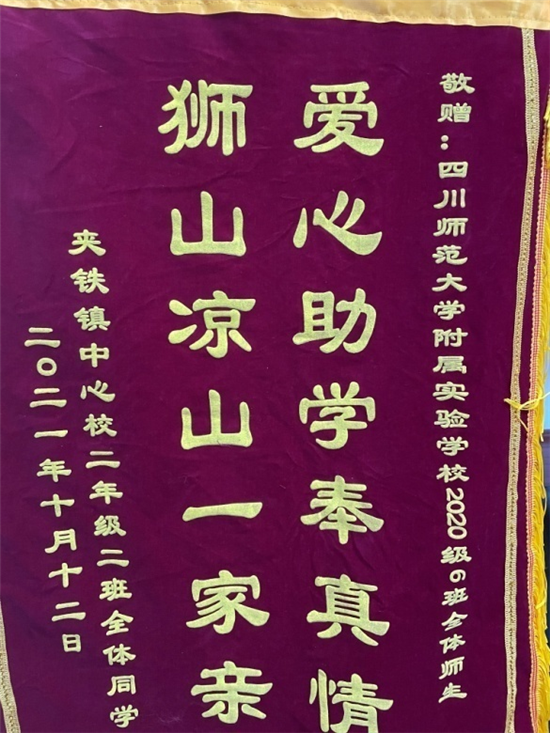 敬赠：四川师范大学附属实验学校2020级6班全体师生
爱心助学奉真情
狮山凉山一家亲
夹铁镇中心校二年级二班全体同学
二〇二一年十月十二日